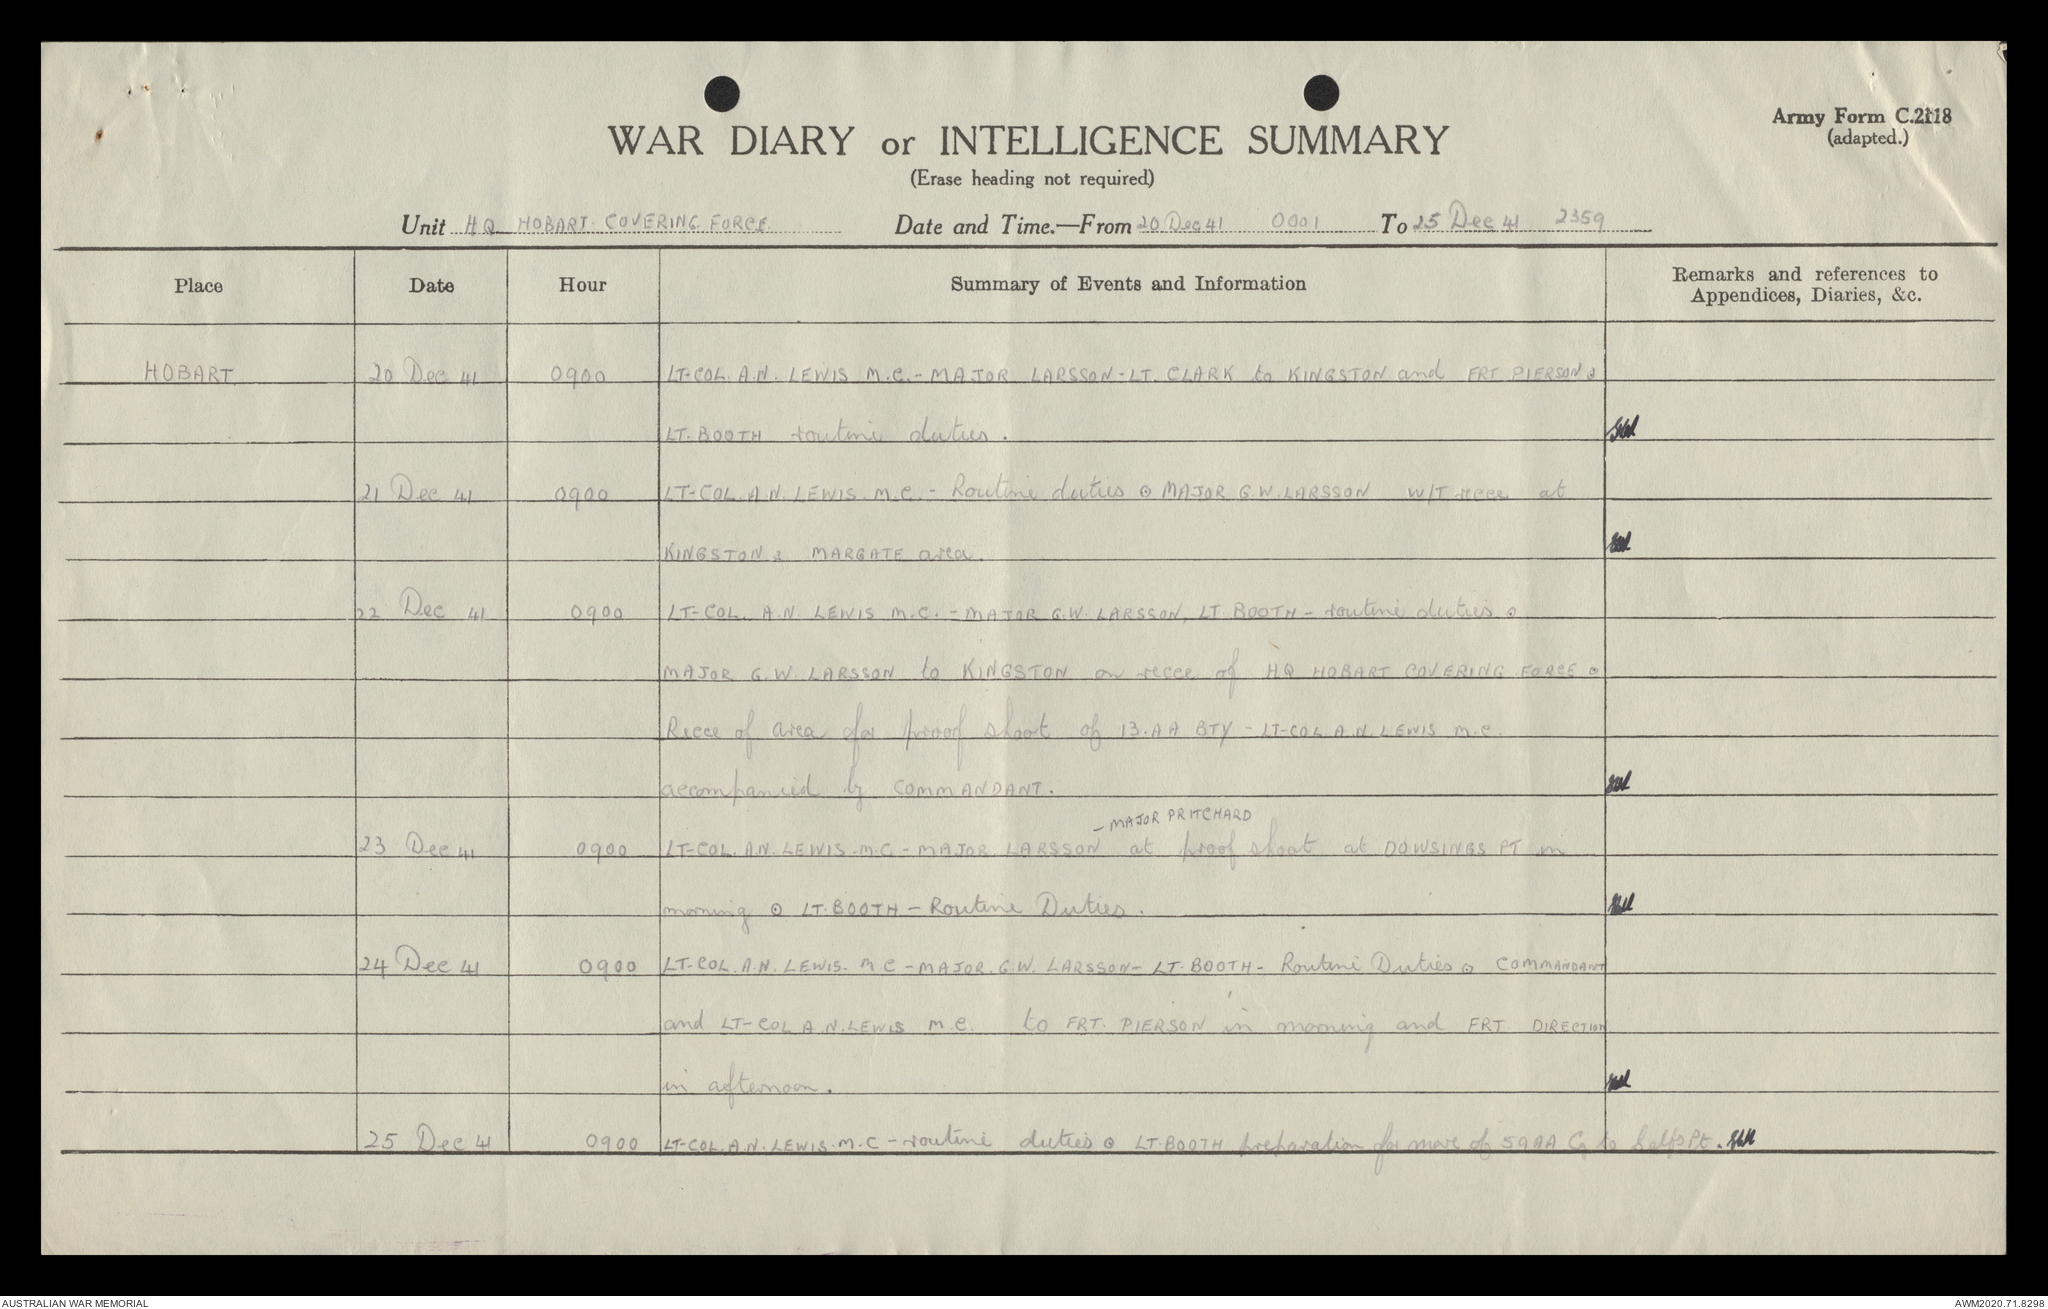 Army Form C.2118
(adapted.)
WAR DIARY or INTELLIGENCE SUMMARY
(Erase heading not required)
Unit HQ HOBART COVERING FORCE Date and Time.—From 20 Dec 41 0001 To 25 Dec 41 2359
Place Date Hour Summary of Events and Information Remarks and references to
Appendices, Diaries, &c.
HOBART 20 Dec 41 0900 LT-COL. A.N. LEWIS M.C. - MAJOR LARSSON - LT. CLARK to KINGSTON and FRT PIERSON ⊙
LT. BOOTH routine duties.
21 Dec 41 0900 LT-COL. A.N. LEWIS. M.C. - Routine duties ⊙ MAJOR G.W. LARSSON W/T recce at
KINGSTON & MARGATE area.
22 Dec 41 0900 LT-COL. A.N. LEWIS M.C. - MAJOR G.W. LARSSON, LT BOOTH - routine duties ⊙
MAJOR G.W. LARSSON to KINGSTON on recce of HQ HOBART COVERING FORCE ⊙
Recce of area for proof shoot of 13.AA BTY - LT-COL A.N. LEWIS M.C.
accompanied by COMMANDANT.
- MAJOR PRITCHARD
23 Dec 41 0900 LT-COL. A.N. LEWIS. M.C - MAJOR LARSSON at proof shoot at DOWSINGS PT in
morning ⊙ LT. BOOTH - Routine Duties.
24 Dec 41 0900 LT-COL. A.N. LEWIS. M.C - MAJOR. G.W. LARSSON - LT. BOOTH - Routine Duties ⊙ COMMANDANT
and LT-COL A.N. LEWIS M.C. to FRT. PIERSON in morning and FRT DIRECTION
in afternoon.
25 Dec 41 0900 LT-COL. A.N. LEWIS. M.C - routine duties ⊙ LT. BOOTH preparation for move of 59 AA Coy to Pt.
AUSTRALIAN WAR MEMORIAL
AWM2020.71.8298